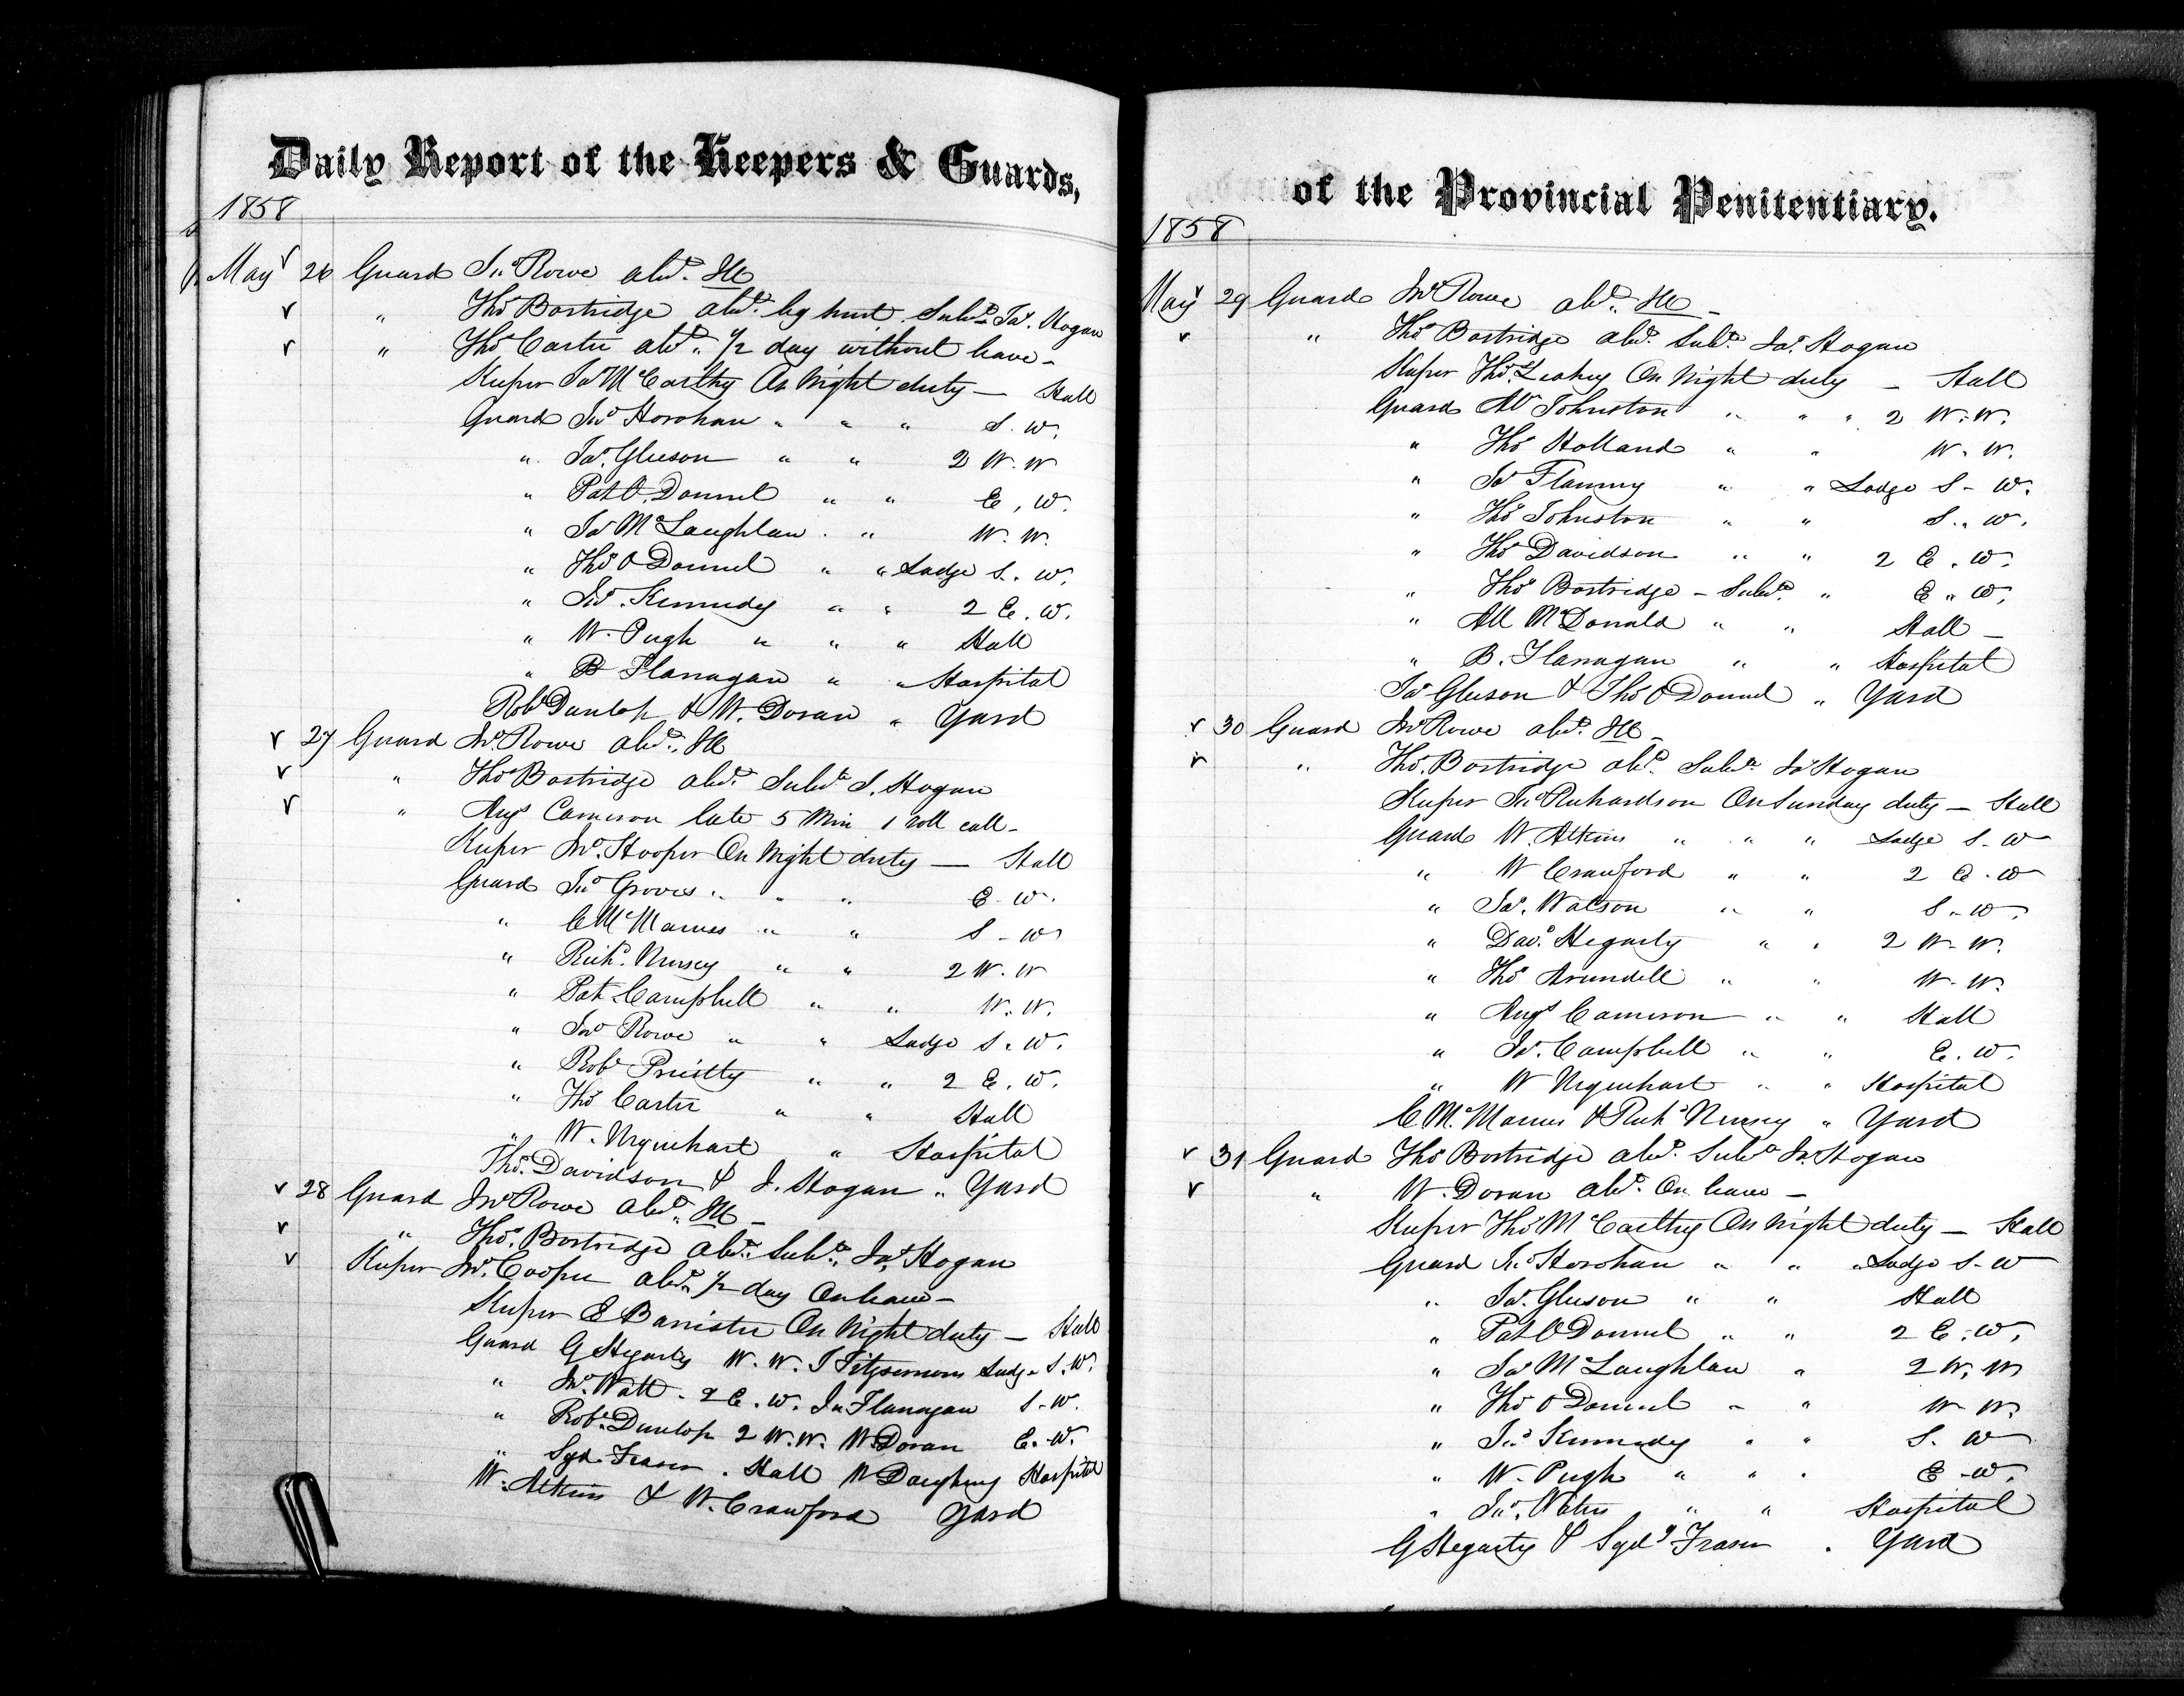 Daily Report of the Keepers & Guards,
1858
May 26 Guard Jno Rowe abst. Ill
" Thos Bostridge abst. leg hurt. Subste Jas. Hogan
" Thos Carter abst. 1/2 day without leave -
Keeper Jas McCarthy On Night duty - Hall
Guard Jno Horohan " " " S. W.
" Jas. Gleeson " " 2 W. W
" Pat O. Donnel " " E. W.
" Jas McLaughlan . " W. W.
" Thos O Donnel " " Lodge S. W.
" Jno. Kennedy " " 2 E. W.
" W. Pugh " " " Hall
" B Flanagan " " Hospital
Robt Dunlop & W. Doran " Yard
27 Guard Jno. Rowe abst. Ill
" Thos Bostridge abst. Subste J. Hogan
" Angs Cameron late 5 Min 1 roll call -
Keeper Jno. Hooper On Night duty - Hall
Guard Jno Groves " " " E. W.
" C McManus " " S - W
" Richd. Nursey " " 2 W. W
" Pat Campbell " " W. W.
" Jno Rowe " " Lodge S. W.
" Robt Priestly " " 2 E. W.
" Thos Carter " " Hall
" W. Urquhart " Hospital
Thos. Davidson & J. Hogan " Yard
28 Guard Jno Rowe abst. Ill -
" Thos. Bostridge abst. Subste. Jas. Hogan
Keeper Jno. Cooper abst. 1/2 day On leave -
Keeper E Banister On Night duty - Hall
Guard G Hegarty W. W. J Fitzsimons Lodge S. W.
" Jno. Watt - 2 E. W. Jno Flanagan S. W.
" Robt. Dunlop 2 W. W. W Doran E. W.
" Sgd. Fraser . Hall W Daughney Hospital
W. Atkins & W. Crawford Yard
of the Provincial Penitentiary.
1858
May 29 Guard Jno Rowe abst. Ill -
" Thos Bostridge abst. Subst. Jas. Hogan
Keeper Thos. Leahey On Night duty - Hall
Guard Ab Johnston " " " 2 W. W.
" Thos Holland " " W. W.
" Jas Flaming " " Lodge S - W.
" Thos Johnston " " S. W.
" Thos Davidson " " 2 E. W.
" Thos Bostridge - Subst. " E. W.
" All McDonald " " Hall -
" B. Flanagan " " Hospital
Jas Gleeson & Thos O Donnel " Yard
30 Guard Jno Rowe abst. Ill -
" Thos. Bostridge abst. Subste Jas Hogan
Keeper Jno Richardson On Sunday duty - Hall
Guard W. Atkins " " " Lodge S. W
" W Crawford " " 2 E. W
" Jas. Watson " " S. W.
" Davd. Hegarty " " 2 W. W.
" Thos Arundell " " W. W.
" Angs Cameron " " Hall
" Jas. Campbell " " E. W.
" W Urquhart " " Hospital
C. McManus & Richd Nursey " Yard
31 Guard Thos Bostridge abst. Subste Jas. Hogan
" W. Doran abst. On leave -
Keeper Thos McCarthy On Night duty - Hall
Guard Jno Horohan " " " Lodge S. W
" Jas. Gleeson " " Hall
" Pat O Donnel " " 2 E. W.
" Jas McLaughlan " 2 W. W
" Thos O Donnel " " W. W.
" Jno Kennedy " " S. W
" W. Pugh " " " E. W.
" Jno. " " Hospital
G Hegarty & Sgd Fraser . Yard